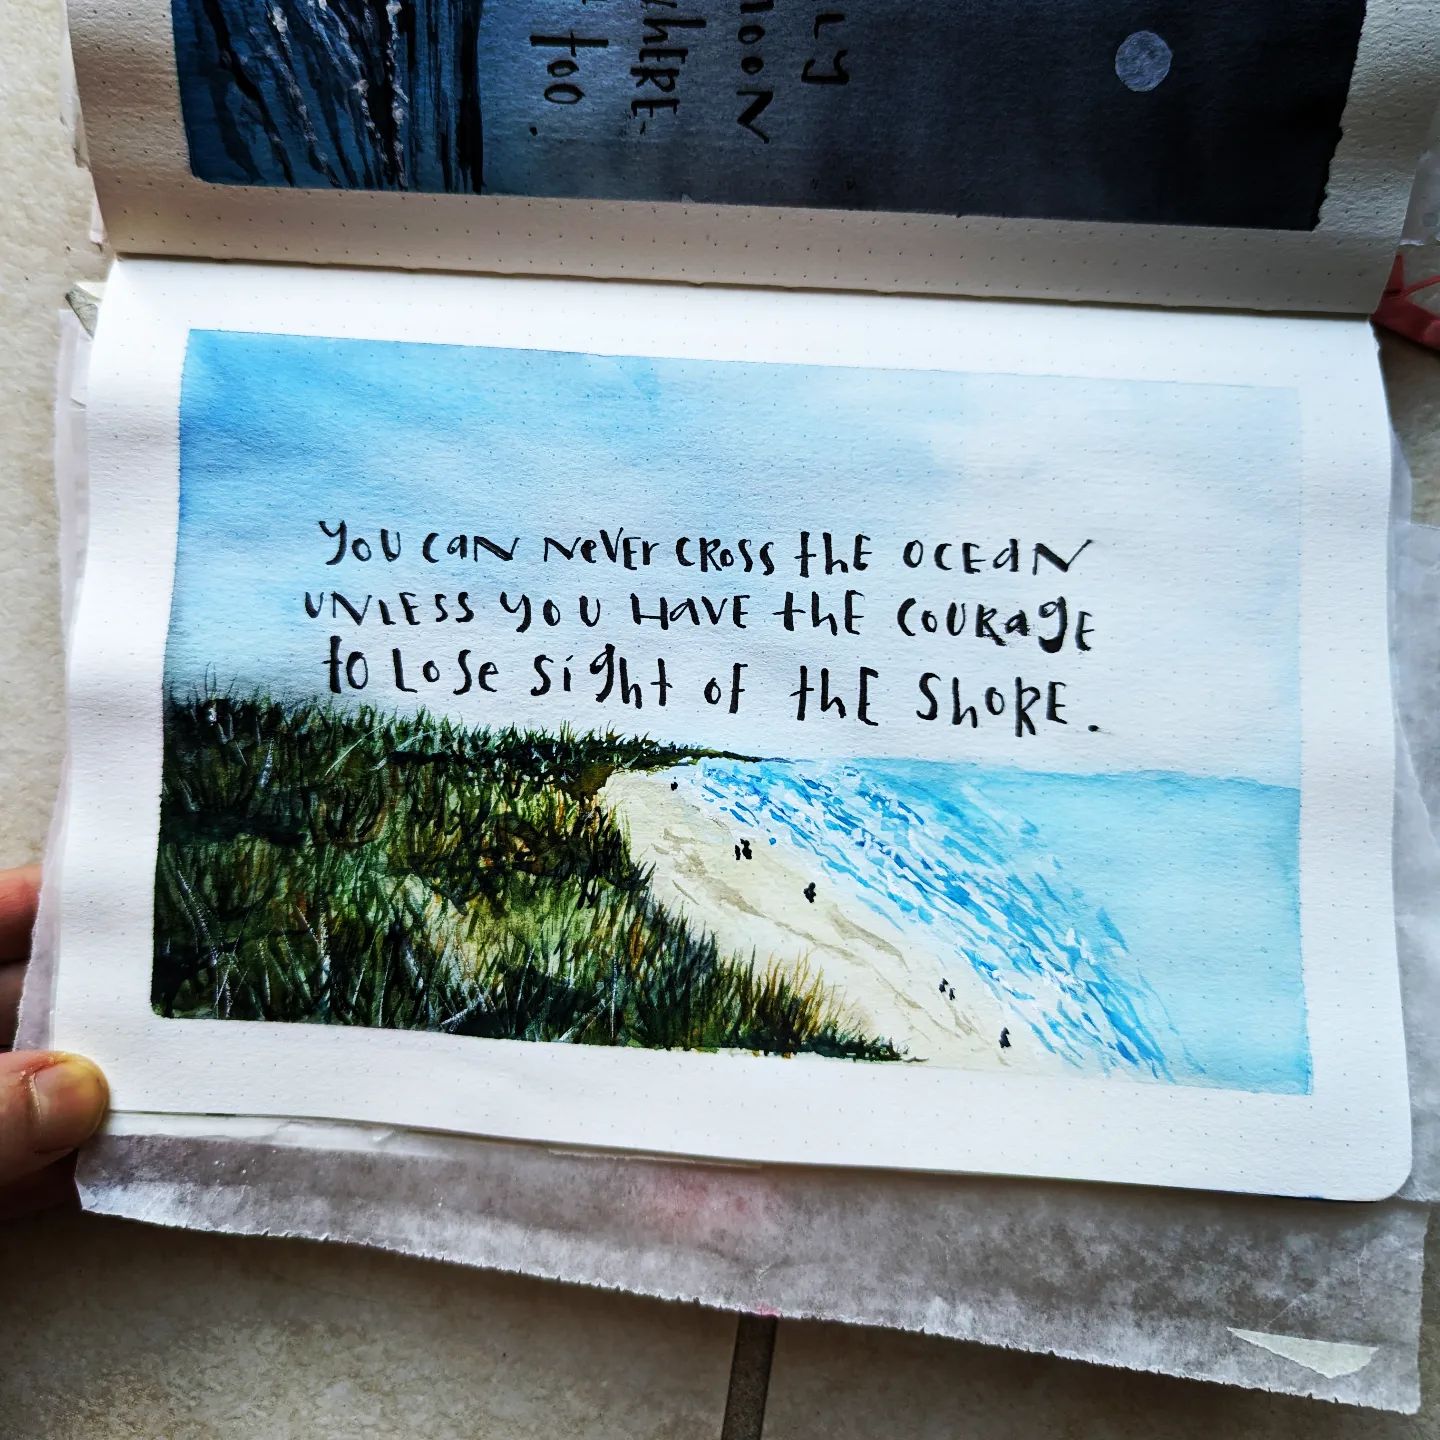 too.
YoU CaN NeVEr CRoss thE OCEaN
UNLESS yoU HaVE thE CoURagE
to LoSe Sight of thE ShoRE.